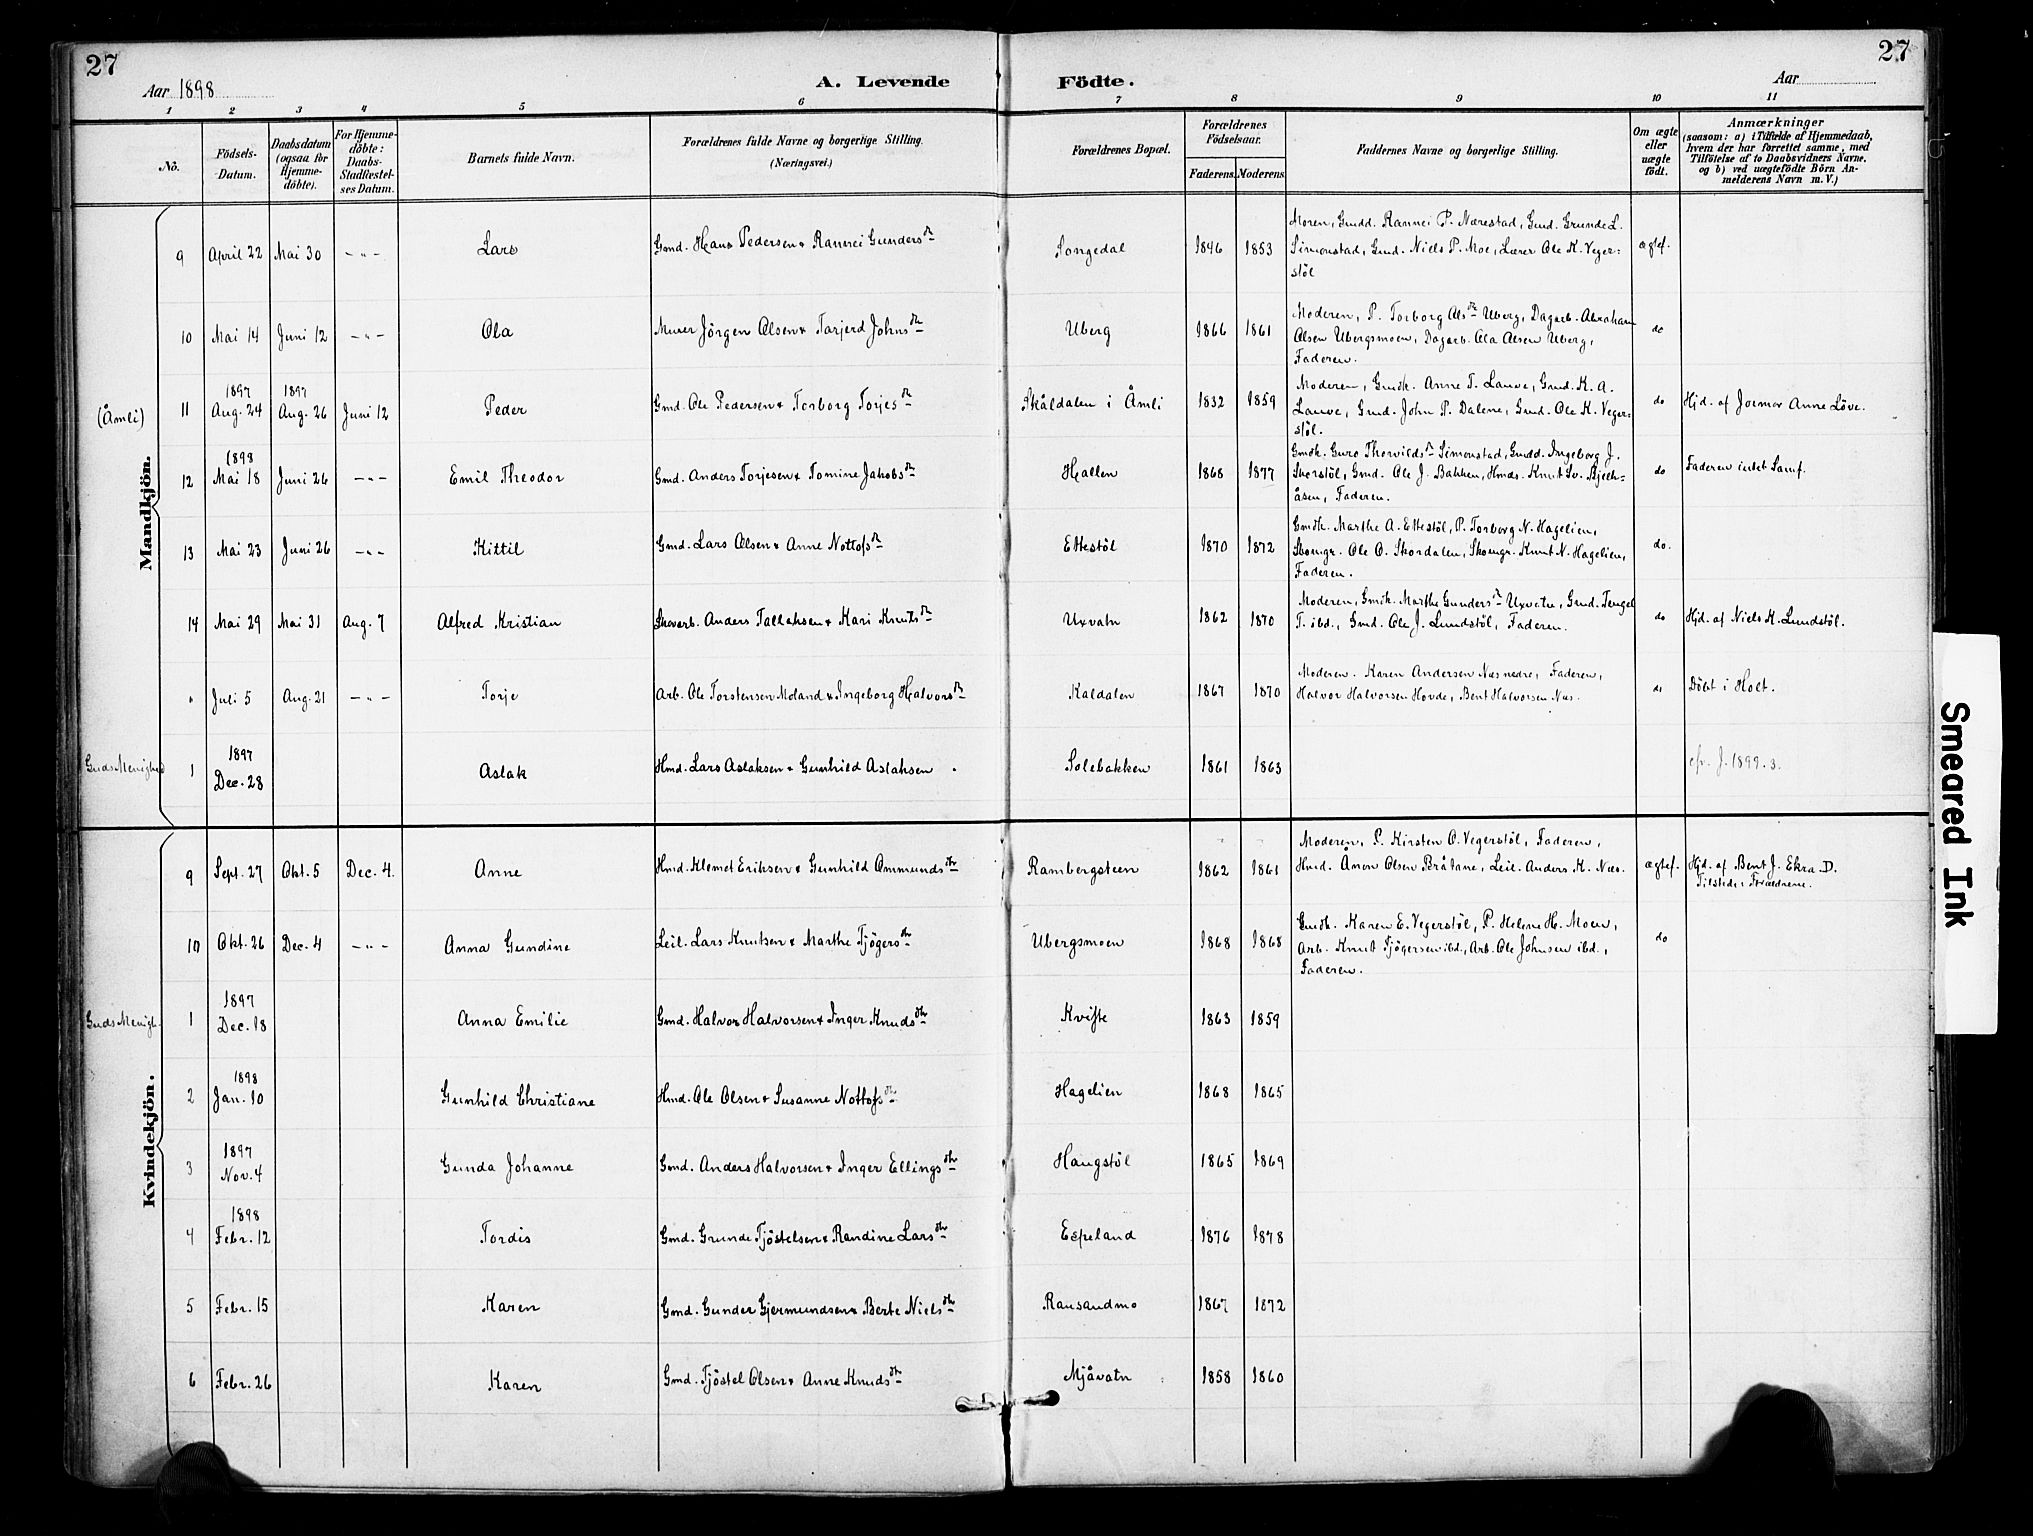 27
27
Aar 1898
A. Levende
Födte.
Aar
1 2 3 4 5 6 7 8 9 10 11
Nô.
Födsels-Datum.
Daabsdatum (ogsaa for Hjemme-döbte).
For Hjemme-döbte: Daabs-Stadfæstel-ses Datum.
Barnets fulde Navn.
Forældrenes fulde Navne og borgerlige Stilling. (Næringsvei.)
Forældrenes Bopæl.
Forældrenes Födselsaar.
Faderens. Moderens.
Faddernes Navne og borgerlige Stilling.
Om ægte eller uægte födt.
Anmærkninger
(saasom: a) i Tilfælde af Hjemmedaab, hvem der har forrettet samme, med Tilföielse af to Daabsvidners Navne, og b) ved uægtefödte Börn An-melderens Navn m. V.)
Mandkjön.
9 April 22 Mai 30 -"- Lars Gmd. Hans Pedersen & Rannei Gundersdr Songedal 1846 1853 Moren, Gmdd. Rannei P. Nærestad, Gmd. Grunde L. Simonstad, Gmd. Niels P. Moe, Lærer Ole K. Veger=støl ægtef.
10 Mai 14 Juni 12 -"- Ola Murer Jörgen Olsen & Tarjerd Johnsdtr Uberg 1866 1861 Moderen, P. Torborg Olsdr Uberg, Dagarb. Abraham Olsen Ubergsmoen, Dagarb. Ola Olsen Uberg, Faderen. do
(Åmli) 11 1897 Aug. 24 1897 Aug. 26 Juni 12 Peder Gmd. Ole Pedersen & Torborg Torjesdr Skåldalen i Åmli 1832 1859 Moderen, Gmdk. Anne T. Lauve, Gmd. K. A. Lauve, Gmd. John P. Dalene, Gmd. Ole K. Veger=støl. do Hjd. af Jormor Anne Löve.
12 1898 Mai 18 Juni 26 -"- Emil Theodor Gmd. Anders Torjesen & Tomine Jakobsdr Hallen 1868 1877 Gmdk. Guro Thorvildsdr Simonstad, Gmdd. Ingeborg J. Skorstöl, Gmd. Ole J. Bakken, Hmds. Knut Sv. åsen, Faderen. do Faderen intet Samf.
13 Mai 23 Juni 26 -"- Kittil Gmd. Lars Olsen & Anne Nottofsdr Ettestöl 1870 1872 Gmdk. Marthe A. Ettestöl, P. Torborg N. Hagelien, Skomgr. Ole O. Skordalen, Skomgr. Knut N. Hagelien, Faderen. do.
14 Mai 29 Mai 31 Aug. 7 Alfred Kristian Skovarb. Anders Tallaksen & Kari Knutsdr Uxvatn 1862 1870 Moderen, Gmdk. Marthe Gundersdr Uxvatn, Gmd. Tengel T. ibd., Gmd. Ole J. Lundstöl, Faderen. do Hjd. af Niels K. Lundstöl.
" Juli 5 Aug. 21 -"- Torje Arb. Ole Torstensen Moland & Ingeborg Halvorsdr Kaldalen 1867 1870 Moderen. Karen Andersen Næs nedre, Faderen, Halvor Halvorsen Hovde, Bent Halvorsen Næs. do Döbt i Holt.
Guds Menighed 1 1897 Dec. 28 Aslak Hmd. Lars Aslaksen & Gunhild Aslaksen Solebakken 1861 1863 cfr. J. 1899. 3.
Kvindekjön.
9 Sept. 27 Okt. 5 Dec. 4. Anne Hmd. Klemet Eriksen & Gunhild Ommundsdtr Rambergsteen 1862 1861 Moderen, P. Kirsten O. Vegerstöl, Faderen, Hmd. Ånon Olsen Bråtane, Leil. Anders K. Næs. ægtef. Hjd. af Bent J. Ekra. D. Tilstede: Forældrene.
10 Okt. 26 Dec. 4 -"- Anna Gundine Leil. Lars Knutsen & Marthe Tjögersdtr Ubergsmoen 1868 1868 Gmdk. Karen E. Vegerstöl, P. Helene H. Moen, Arb. Knut Tjögersen ibd., Arb. Ole Johnsen ibd., Faderen. do
Guds Menigh. 1 1897 Dec. 18 Anna Emilie Gmd. Halvor Halvorsen & Inger Knudsdtr Kvifte 1863 1859
2 1898 Jan. 10 Gunhild Christiane Hmd. Ole Olsen & Susanne Nottofsdtr Hagelien 1868 1865
3 1897 Nov. 4 Gunda Johanne Gmd. Anders Halvorsen & Inger Ellingsdtr Haugstöl 1865 1869
4 1898 Febr. 12 Tordis Gmd. Grunde Tjöstelsen & Randine Larsdtr Espeland 1876 1878
5 Febr. 15 Karen Gmd. Gunder Gjermundsen & Berte Nielsdtr Ransandmo 1867 1872
6 Febr. 26 Karen Gmd. Tjöstel Olsen & Anne Knudsdtr Mjåvatn 1858 1860
Smeared Ink